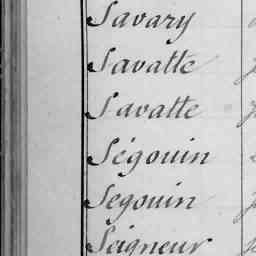 Savary
Savatte
Savatte
Ségouin
Segouin
Seigneur